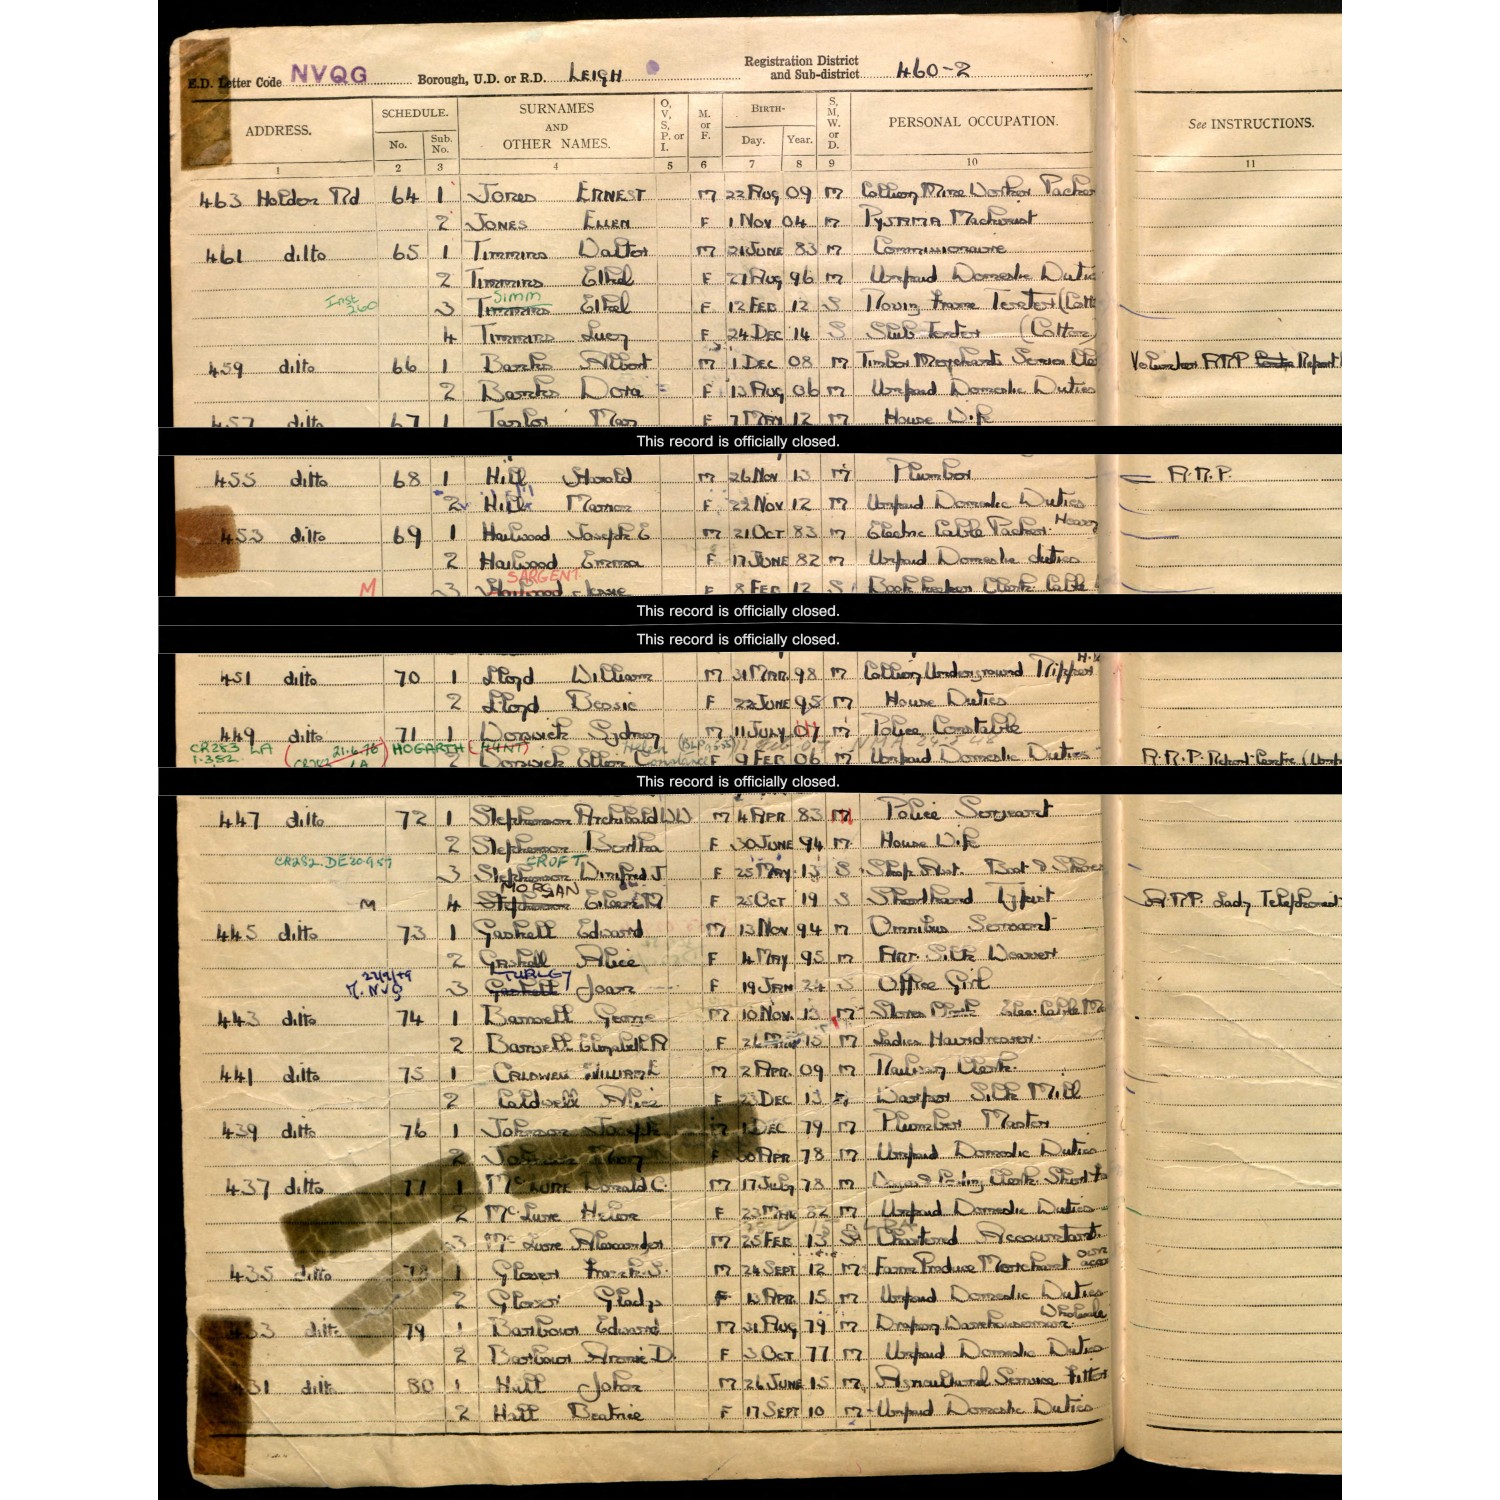 E.D. Letter Code NVQG Borough, U.D. or R.D. LEIGH Registration District and Sub-district 460-2
ADDRESS. SCHEDULE. No. Sub. No. SURNAMES AND OTHER NAMES. O, V, S, P. or I. M. or F. BIRTH- Day. Year. S, M, W. or D. PERSONAL OCCUPATION. See INSTRUCTIONS.
1 2 3 4 5 6 7 8 9 10 11
463 Holden Rd 64 1 Jones ERNEST M 22 Aug 09 M Colliery Mine Worker Packer
2 JONES ELLEN F 1 NOV 04 M PYJAMA Machinist
461 ditto 65 1 Timmins Walter M 21 JUNE 83 M Commissionaire
2 Timmins Ethel F 27 Aug 96 M Unpaid Domestic Duties
Inst 260 SIMM
3 Timmins Ethel F 12 FEB 12 S Roving Frame Tenter (Cott
4 Timmins Lucy F 24 DEC 14 S Slub Tenter (Cotton)
459 ditto 66 1 Banks Albert M 1 DEC 08 M Timber Merchants Senior Cle Volunteer A.R.P. Centre Report
2 Banks Dora F 13 Aug 06 M Unpaid Domestic Duties
457 ditto 67 1 Taylor May F 7 MAY 12 M House Wife
This record is officially closed.
455 ditto 68 1 Hill Harold M 26 Nov 13 M Plumber A.R.P.
2 Hill F 22 Nov 12 M Unpaid Domestic Duties
453 ditto 69 1 Hailwood Joseph E M 21 OCT 83 M Electric Cable Packer Heavy
2 Hailwood Emma F 17 JUNE 82 M Unpaid Domestic duties
SARGENT
M 3 Hailwood Jessie F 8 FEB 12 S Book Keeper Clerk Cable
This record is officially closed.
This record is officially closed.
451 ditto 70 1 Lloyd William M 31 MAR 98 M Colliery Underground Ripper
2 Lloyd Bessie F 22 JUNE 95 M House Duties
449 ditto 71 1 Dorwick Sydney M 11 JULY 07 M Police Constable
CR283 LA 1.382 21.6.76 HOGARTH (HUNT)
2 Dorwick Ellen Constance F 9 FEB 06 M Unpaid Domestic Duties A.R.P. Report Centre
This record is officially closed.
447 ditto 72 1 Stephenson Archibald W M 4 APR 83 M Police Sergeant
2 Stephenson Bertha F 30 JUNE 94 M House Wife
CR282 DE 20.9.57 CROFT
3 Stephenson Winifred J F 25 May 13 S Shop Asst. Boot & Shoes
MORGAN
M 4 Stephenson Eileen M F 25 Oct 19 S Shorthand Typist A.R.P. Lady Telephonist
445 ditto 73 1 Gaskell Edward M 13 Nov 94 M Omnibus Servant
2 Gaskell Alice F 4 MAY 95 M Art. Silk Weaver
TURLEY
3 Gaskell Joan F 19 JAN 24 S Office Girl
443 ditto 74 1 Banwell George M 10 Nov. 13 M Stores
2 Banwell Elizabeth A F 26 15 M Ladies Hairdresser
441 ditto 75 1 CALDWELL WILLIAM E M 2 APR. 09 M Railway Clerk
2 Caldwell Alice F 23 DEC 13 Warper Silk Mill
439 ditto 76 1 Johnson Joseph M 1 DEC 79 M Plumber Master
2 Johnson Mary F 30 APR 78 M Unpaid Domestic Duties
437 ditto 77 1 McLURE Donald C. M 17 July 78 M
2 McLure Helen F 23 MAR 82 M Unpaid Domestic Duties
3 McLure Alexander M 25 FEB 13 S Chartered Accountant
435 ditto 78 1 Glover Frank S. M 24 SEPT 12 M Farm Produce Merchant own
2 Glover Gladys F 13 APR 15 M Unpaid Domestic Duties
433 ditto 79 1 Barbour Edward M 31 Aug 79 M Drapery Warehouseman Wholesale
2 Barbour Annie D. F 3 OCT 77 M Unpaid Domestic Duties
431 ditto 80 1 Hall John M 26 JUNE 15 M Agricultural Service Fitter
2 Hall Beatrice F 17 SEPT 10 M Unpaid Domestic Duties